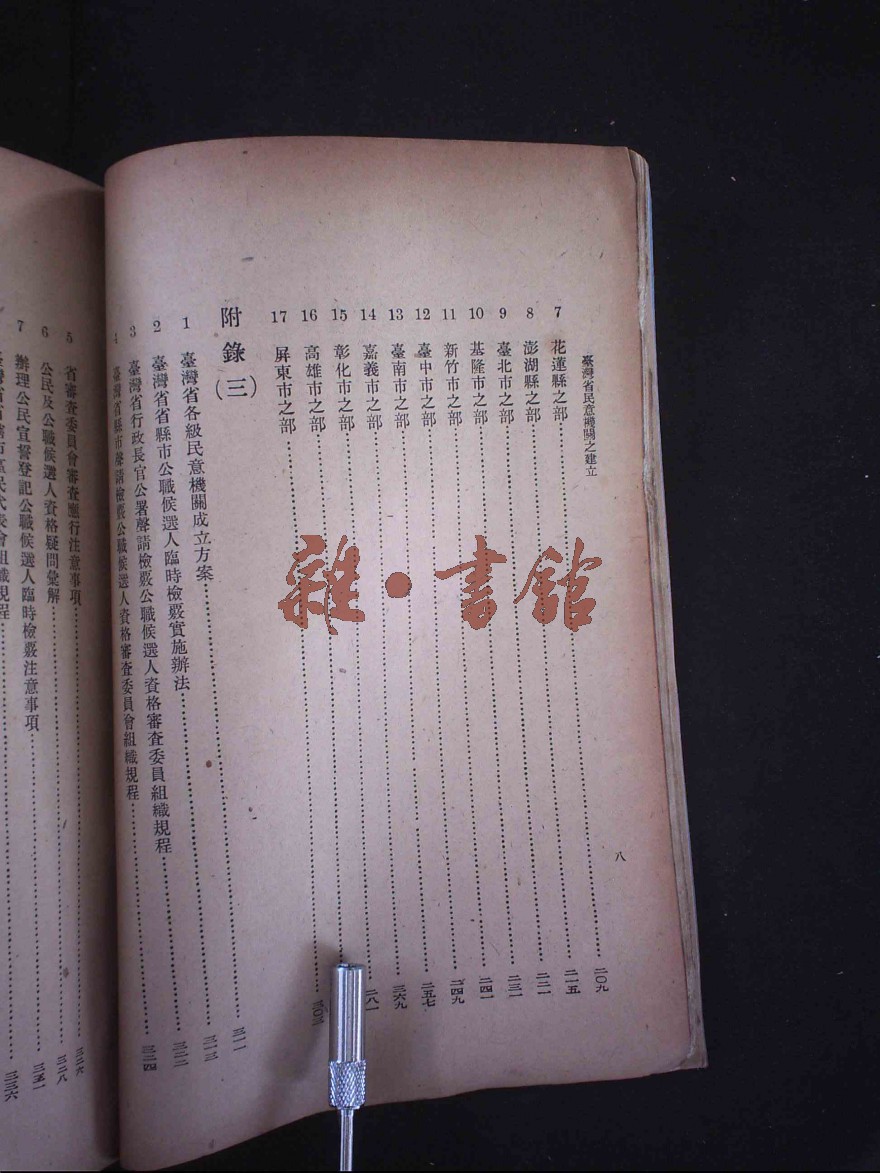 臺灣省民意機關之建立
八
7 花蓮縣之部……二〇九
8 澎湖縣之部……二一五
9 臺北市之部……二二一
10 基隆市之部……二三一
11 新竹市之部……二四一
12 臺中市之部……二四九
13 臺南市之部……二五七
14 嘉義市之部……二六九
15 彰化市之部……二八一
16 高雄市之部……
17 屏東市之部……三〇三
附錄(三)
1 臺灣省各級民意機關成立方案……三一一
2 臺灣省省縣市公職候選人臨時檢覈實施辦法……三一三
3 臺灣省行政長官公署聲請檢覈公職候選人資格審查委員組織規程……三二二
4 臺灣省縣市聲請檢覈公職候選人資格審查委員會組織規程……三二四
5 省審查委員會審查應行注意事項……三二六
6 公民及公職候選人資格疑問彙解……三二八
7 辦理公民宣誓登記公職候選人臨時檢覈注意事項……
民代表會組織規程……三三六
雜·書館